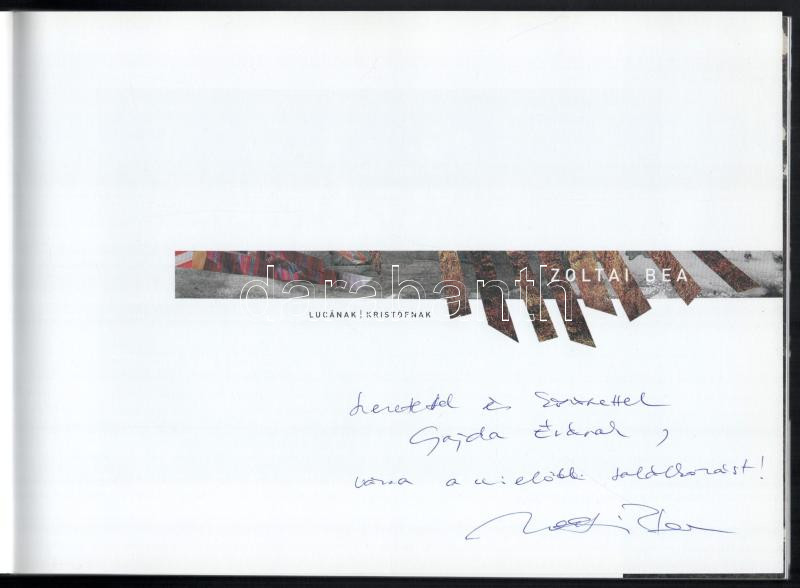 ZOLTAI BEA
darabanth
LUCÁNAK! KRISTÓFNAK
Szeretettel és tisztelettel
Gajda Évának,
várva a mielőbbi találkozást!
Zoltai Bea